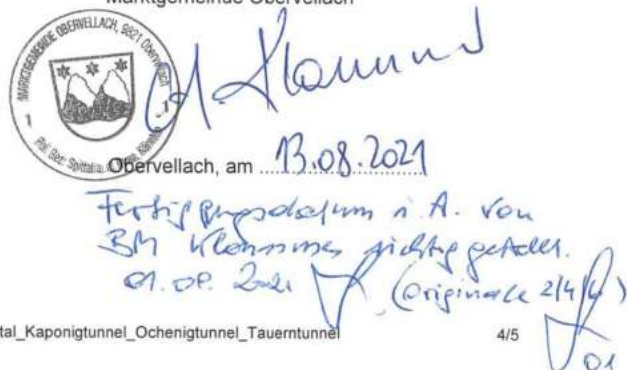 Marktgemeinde Obervellach
MARKTGEMEINDE OBERVELLACH, 9821 Obervellach
1 1
Pol. Bez. Spittal a. d. Drau, Kärnten
Obervellach, am 13.08.2021
Fertigungsdatum i. A. von
BM richtig gestellt.
(Originale 2/4/
tal_Kaponigtunnel_Ochenigtunnel_Tauerntunnel 4/5